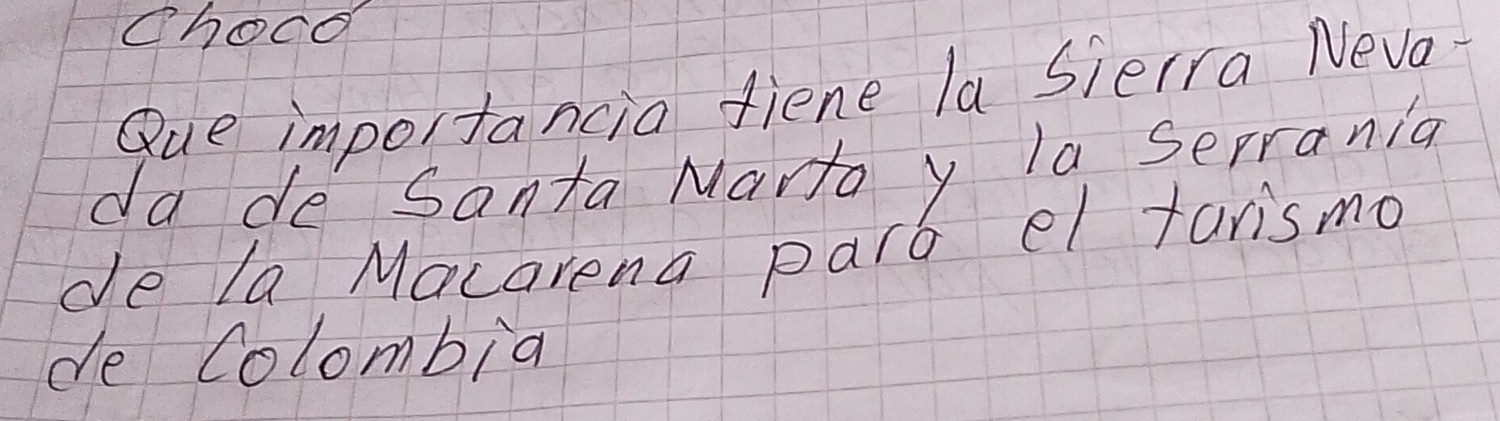 Choco
Que importancia tiene la Sierra Neva-
da de Santa Marta y la Serranía
de la Macarena para el turismo
de Colombia